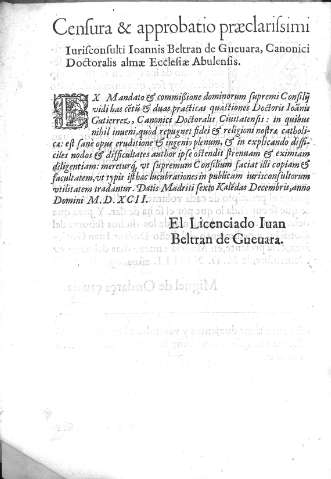 Censura & approbatio præclarissimi
Iurisconsulti Ioannis Beltran de Gueuara, Canonici
Doctoralis almæ Ecclesiæ Abulensis.
EX Mandato & commißione dominorum supremi Consilij
vidi has cētū & duas practicas quæstiones Doctoris Ioānis
Gutierrez, Canonici Doctoralis Ciuitatensis: in quibus
nihil inueni, quod repugnet fidei & religioni nostræ catholi-
cæ: est sanè opus eruditione & ingenio plenum, & in explicando diffi-
ciles nodos & difficultates author ipse ostendit strenuam & eximiam
diligentiam: mereturq, vt supremum Consilium faciat illi copiam &
facultatem, vt typis isthæc lucubrationes in publicam iurisconsultorum
vtilitatem tradantur. Datis Madriti sexto Kalēdas Decembris, anno
Domini M. D. XCII.
El Licenciado Iuan
Beltran de Gueuara.